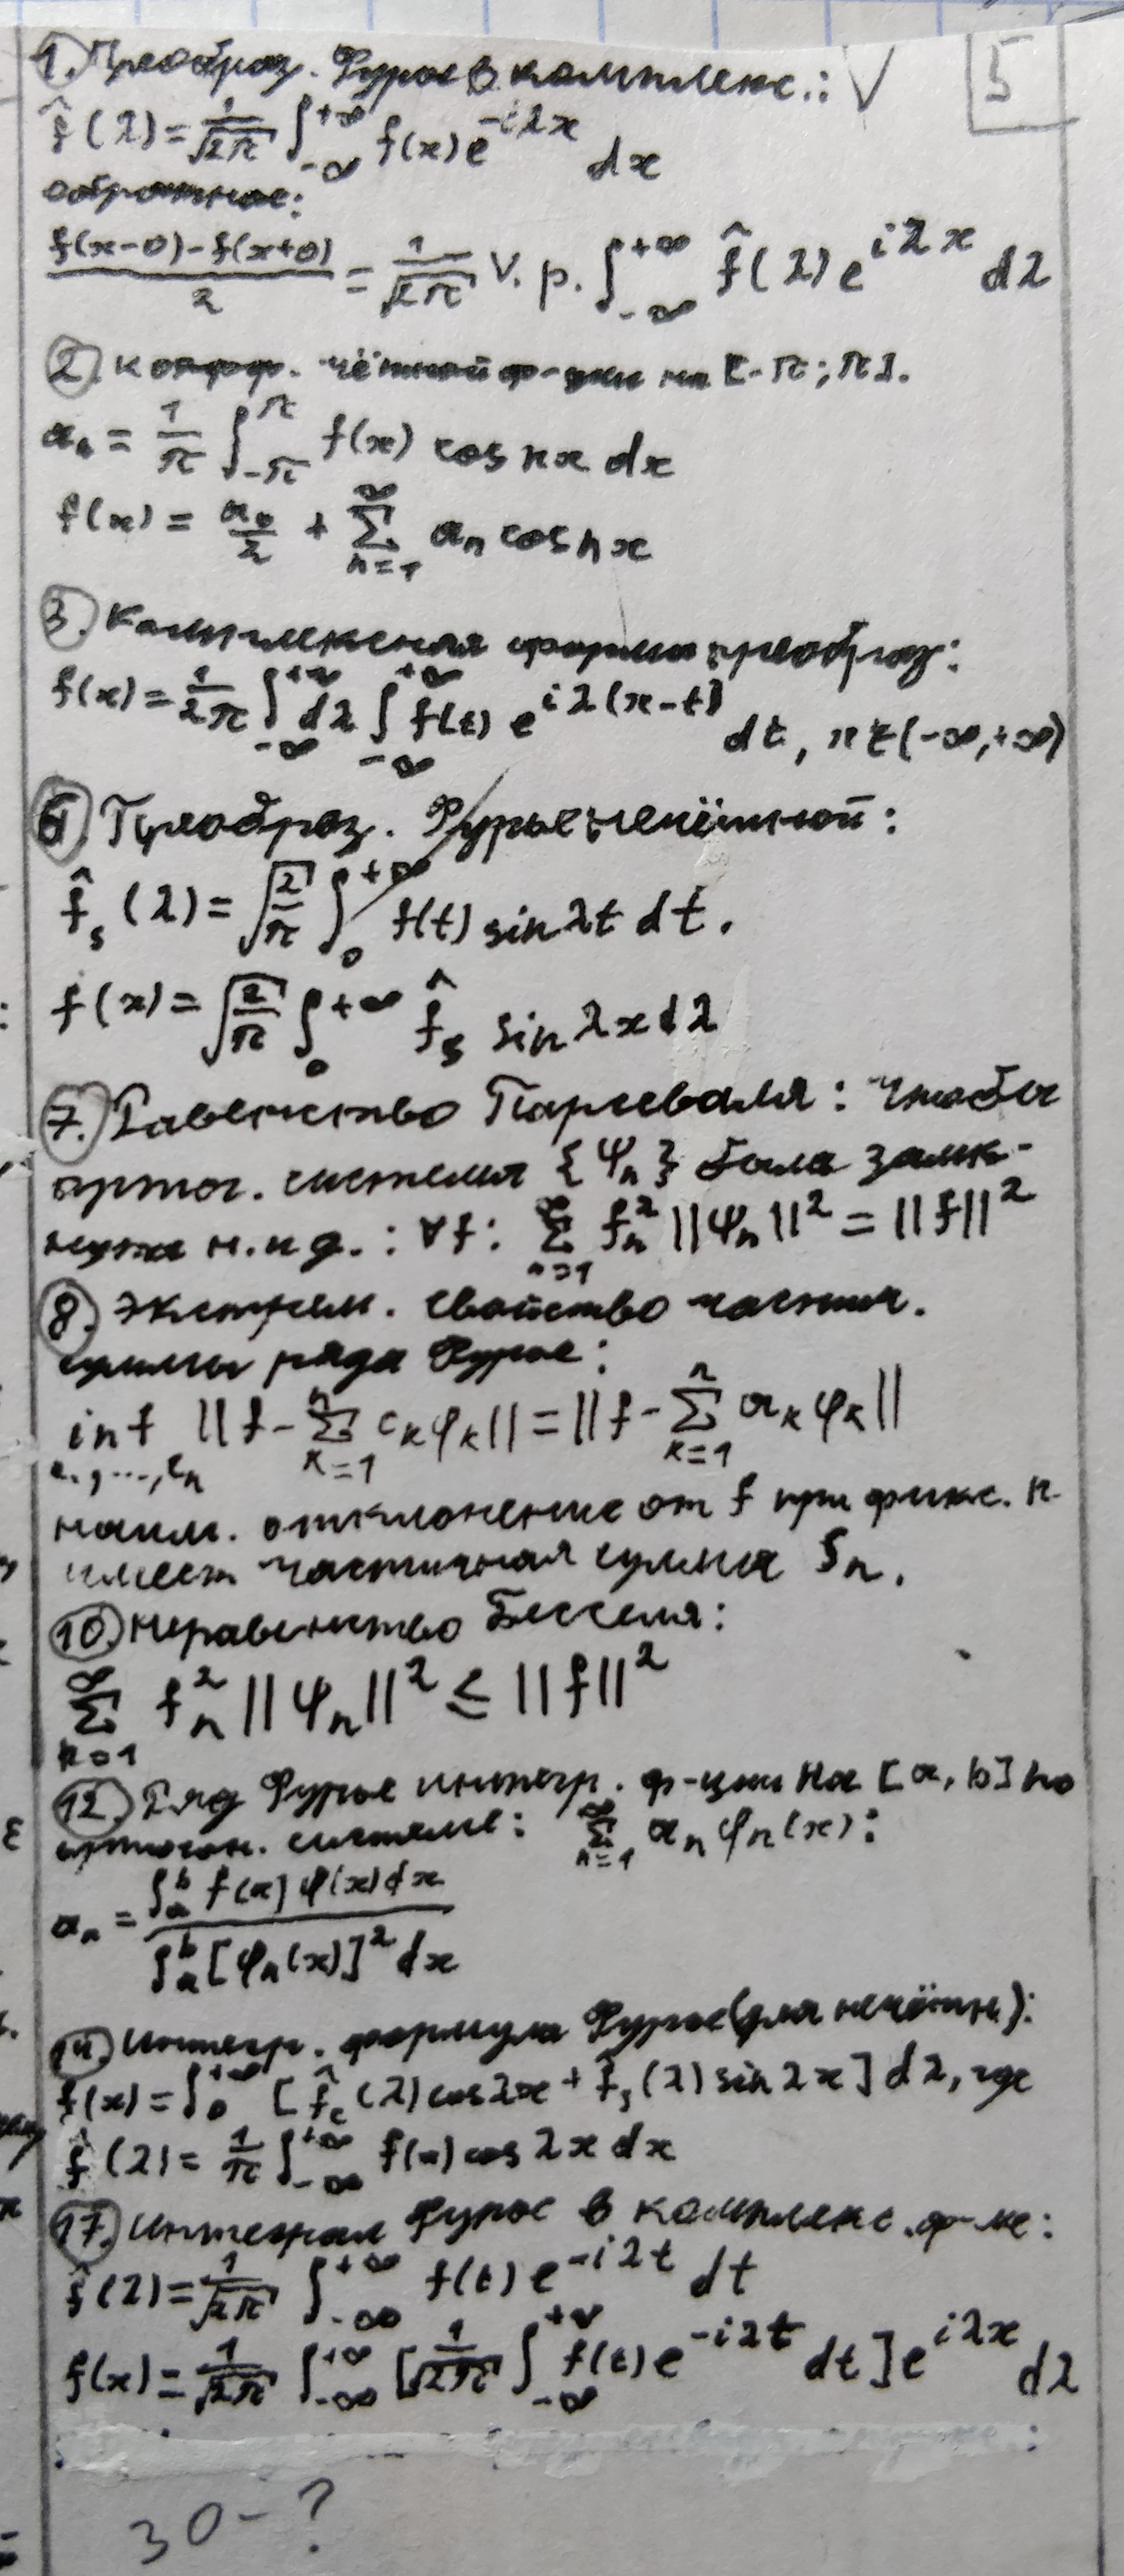 1. Преобраз. Фурье в комплекс.: V 5
f̂(λ) = 1/√2π ∫_{-∞}^{+∞} f(x) e^{-iλx} dx
обратное:
(f(x-0) - f(x+0))/2 = 1/√2π V. p. ∫_{-∞}^{+∞} f̂(λ) e^{iλx} dλ
2. Коэфф. чётной ф-ции на [-π; π].
aₙ = 1/π ∫_{-π}^{π} f(x) cos nx dx
f(x) = a₀/2 + ∑_{n=1}^{∞} aₙ cos nx
3. Комплексная форма преобраз:
f(x) = 1/2π ∫_{-∞}^{+∞} dλ ∫_{-∞}^{+∞} f(t) e^{iλ(x-t)} dt, (-∞, +∞)
6. Преобраз. Фурье нечётной:
f̂_s(λ) = √(2/π) ∫_0^{+∞} f(t) sin λt dt.
f(x) = √(2/π) ∫_0^{+∞} f̂_s sin λx dλ
7. Равенство Парсеваля: Чтобы
ортог. система {φₙ} была замк-
нута н. и д.: ∀f: ∑_{n=1}^{∞} fₙ² ||φₙ||² = ||f||²
8. Экстрем. свойство частич.
суммы ряда Фурье:
inf_{c₁,...,cₙ} ||f - ∑_{k=1}^{n} c_k φ_k|| = ||f - ∑_{k=1}^{n} a_k φ_k||
наим. отклонение от f при фикс. n
имеет частичная сумма Sₙ.
10. Неравенство Бесселя:
∑_{n=1}^{∞} fₙ² ||φₙ||² ≤ ||f||²
12. Ряд Фурье интегр. ф-ции на [a, b] по
ортогон. системе: ∑_{n=1}^{∞} aₙ φₙ(x):
aₙ = ∫_a^b f(x) φ(x) dx / ∫_a^b [φₙ(x)]² dx
Интегр. формула Фурье (для нечётн.):
f(x) = ∫_0^{+∞} [f̂_c(λ) cos λx + f̂_s(λ) sin λx] dλ, где
f̂(λ) = 1/π ∫_{-∞}^{+∞} f(x) cos λx dx
17. Интеграл Фурье в комплекс. ф-ме:
f̂(λ) = 1/√2π ∫_{-∞}^{+∞} f(t) e^{-iλt} dt
f(x) = 1/√2π ∫_{-∞}^{+∞} [1/√2π ∫_{-∞}^{+∞} f(t) e^{-iλt} dt] e^{iλx} dλ
30 - ?